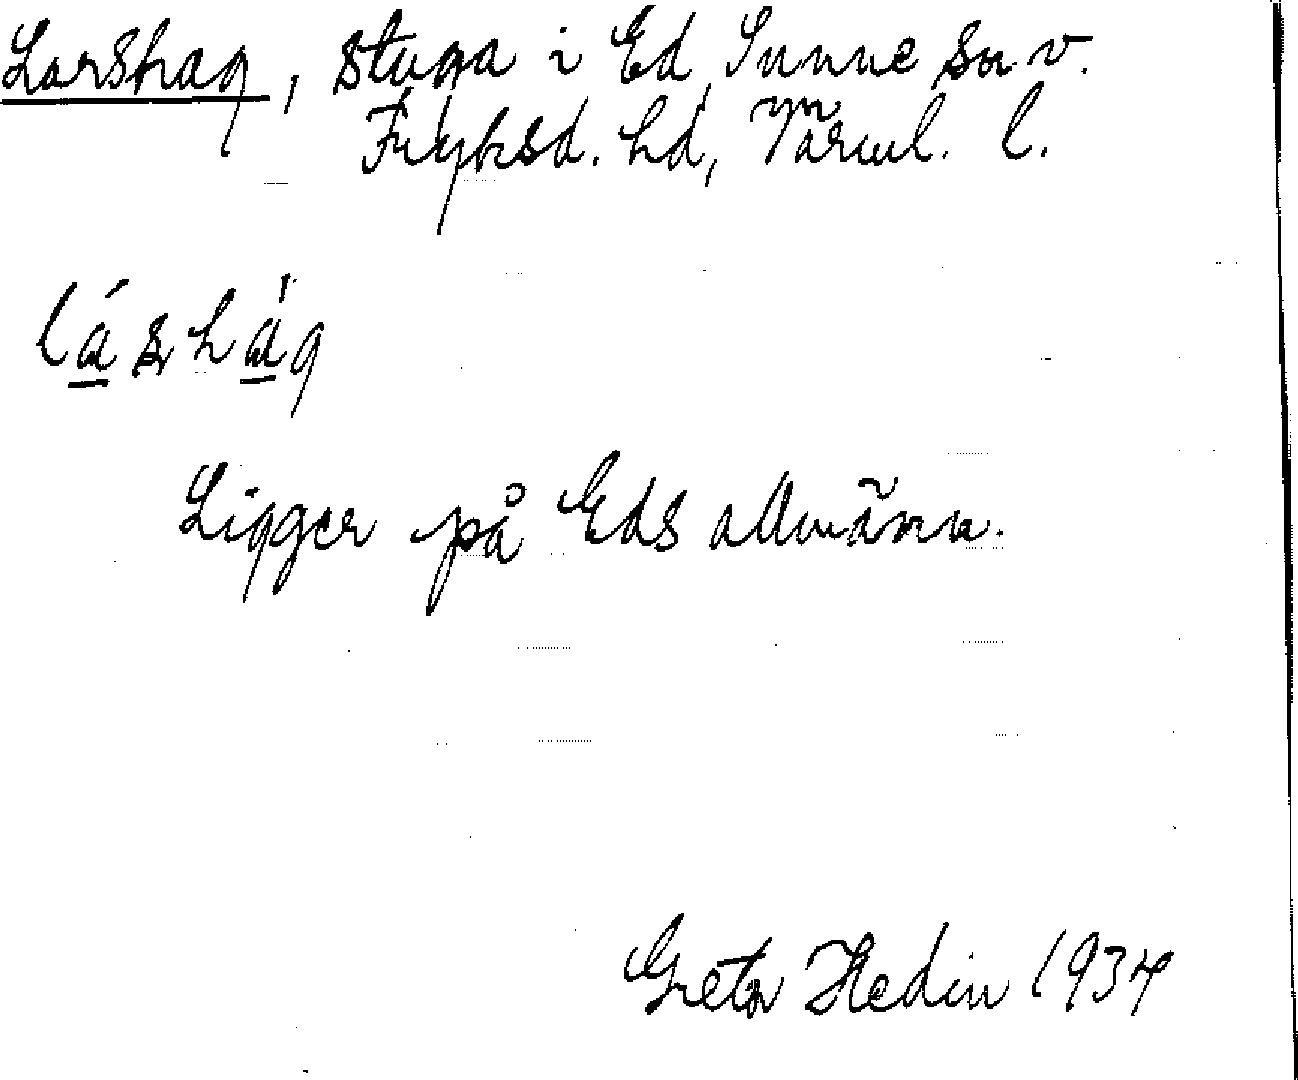 Larshag, stuga i Ed Sunne sn v.
Fryksd. hd, Värml. l.
lá̱sha̱̍g
Ligger på Eds allmänn.
Greta Hedin 1934